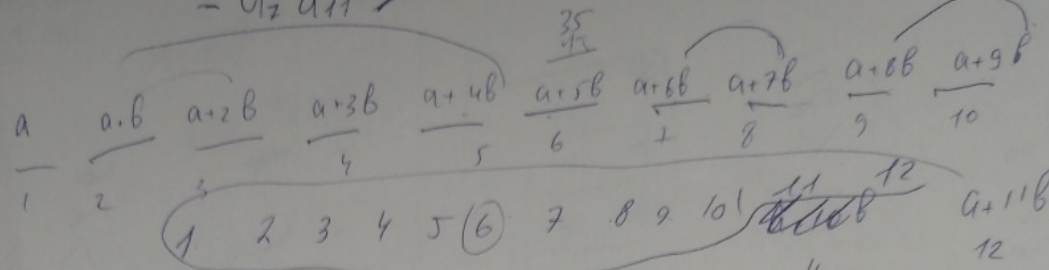 - a₇ a11
35
a a+b a+2b a+3b a+4b a+5b a+6b a+7b a+8b a+9b
1 2 3 4 5 6 7 8 9 10
1 2 3 4 5 6 7 8 9 10 11 12 a+11b
12